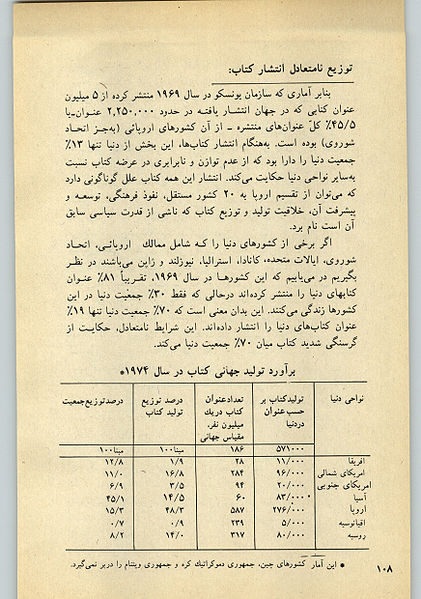 توزیع نامتعادل انتشار کتاب:
بنابر آماری که سازمان یونسکو در سال ۱۹۶۹ منتشر کرده از ۵ میلیون
عنوان کتابی که در جهان انتشار یافته در حدود ۲٫۲۵۰٫۰۰۰ عنوان-یا
۴۵/۵٪ کل عنوان‌های منتشره - از آن کشورهای اروپائی (به‌جز اتحاد
شوروی) بوده است. به‌هنگام انتشار کتاب‌ها، این بخش از دنیا تنها ۱۳٪
جمعیت دنیا را دارا بود که از عدم توازن و نابرابری در عرضه کتاب نسبت
به‌سایر نواحی دنیا حکایت می‌کند. انتشار این همه کتاب علل گوناگونی دارد
که می‌توان از تقسیم اروپا به ۲۰ کشور مستقل، نفوذ فرهنگی، توسعه و
پیشرفت آن، خلاقیت تولید و توزیع کتاب که ناشی از قدرت سیاسی سابق
آن است نام برد.
اگر برخی از کشورهای دنیا را که شامل ممالک اروپائی، اتحاد
شوروی، ایالات متحده، کانادا، استرالیا، نیوزلند و ژاپن می‌باشند در نظر
بگیریم در می‌یابیم که این کشورها در سال ۱۹۶۹، تقریباً ۸۱٪ عنوان
کتابهای دنیا را منتشر کرده‌اند درحالی که فقط ۳۰٪ جمعیت دنیا در این
کشورها زندگی می‌کنند. این بدان معنی است که ۷۰٪ جمعیت دنیا تنها ۱۹٪
عنوان کتاب‌های دنیا را انتشار داده‌اند. این شرایط نامتعادل، حکایت از
گرسنگی شدید کتاب میان ۷۰٪ جمعیت دنیا می‌کند.
برآورد تولید جهانی کتاب در سال ۱۹۷۴*
نواحی دنیا تولیدکتاب بر تعدادعنوان درصد توزیع درصدتوزیع‌جمعیت
حسب‌عنوان کتاب دریك تولید کتاب
دردنیا میلیون نفر،
مقیاس جهانی
۵۷۱۰۰۰ ۱۸۶ مبنا۱۰۰ مبنا۱۰۰
افریقا ۱۱/۰۰۰ ۲۸ ۱/۹ ۱۲/۸
امریکای شمالی ۹۶/۰۰۰ ۲۸۴ ۱۶/۸ ۱۱/۰
امریکای جنوبی ۲۰/۰۰۰ ۹۴ ۳/۵ ۶/۹
آسیا ۸۳/۰۰۰ ۶۰ ۱۴/۵ ۴۵/۱
اروپا ۲۷۶/۰۰۰ ۵۸۷ ۴۸/۳ ۱۵/۳
اقیانوسیه ۵/۰۰۰ ۲۳۹ ۰/۹ ۰/۷
روسیه ۸۰/۰۰۰ ۳۱۷ ۱۴/۰ ۸/۲
* این آمار کشورهای چین، جمهوری دموکراتیك کره و جمهوری ویتنام را دربر نمی‌گیرد.
۱۰۸